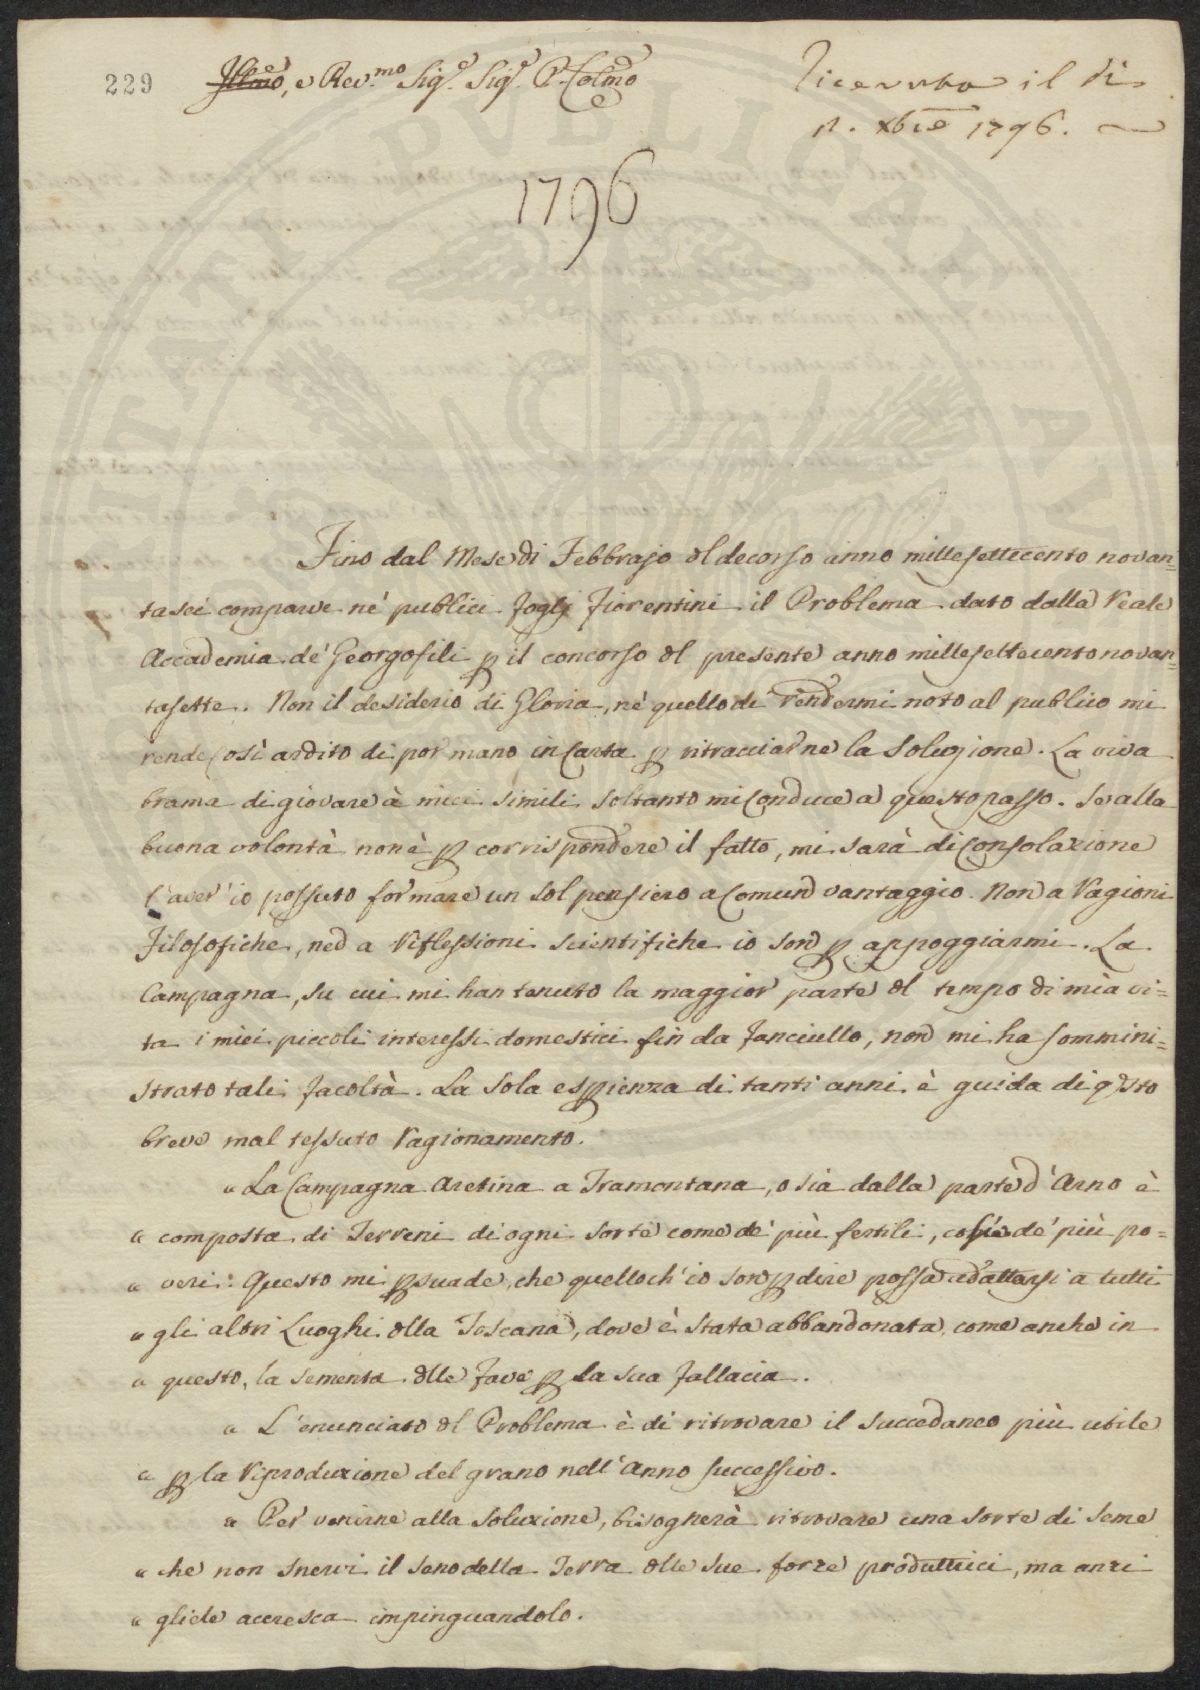 229
Illmo, e Rev.mo Sig.e Sig.e P. Colmo
Ricevuta il dì
xbre 1796.
1796
Fino dal Mese di Febbrajo dl decorso anno millesettecento novan=
tasei comparve ne' publici Foglj Fiorentini il Problema dato dalla Reale
Accademia de' Georgofili p il concorso dl presente anno millesettecentonovan=
tasette. Non il desiderio di Gloria, nè quello di rendermi noto al publico mi
rende così ardito di por mano in Carta p ritracciarne la Soluzione. La viva
brama di giovare à miei simili soltanto mi Conduce a questo passo. Se alla
buona volontà non è p corrispondere il fatto, mi sarà di Consolazione
l'aver' io possuto formare un sol pensiero a Comun vantaggio. Non a Ragioni
Filosofiche, ned a Riflessioni scientifiche io son p appoggiarmi. La
Campagna, su cui mi han tenuto la maggior parte dl tempo di mia vi=
ta i miei piccoli interessi domestici fin da Fanciullo, non mi ha sommini=
strato tali facoltà. La sola espienza di tanti anni è guida di qsto
breve mal tessuto Ragionamento.
" La Campagna Aretina a Tramontana, o sia dalla parte d'Arno è
" composta di Terreni di ogni sorte come de' più fertili, così de' più po=
" veri: Questo mi psuade, che quello ch'io son p dire possa adattarsi a tutti
" gli altri Luoghi dlla Toscana, dove è stata abbandonata, come anche in
" questo, la sementa dlle Fave p la sua fallacia.
" L'enunciato dl Problema è di ritrovare il succedaneo più utile
" p la Riproduzione del grano nell'Anno successivo.
" Per venirne alla soluzione, bisognerà ritrovare una sorte di seme
" che non snervi il seno della Terra dlle sue forze produttrici, ma anzi
" gliele accresca impinguandolo.